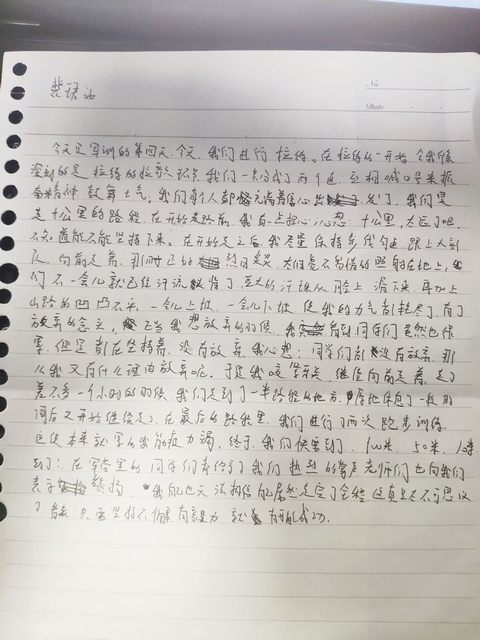 No
Date
今天是军训的第四天,今天,我们进行拉练。在拉练从一开始,令我印
深刻的是拉练的拉歌环节,我们一共分成了两个连,互相喊口号来振
奋精神,鼓舞士气,我们每个人都充满着信心出发了,我们要
走十公里的路程,在开始走路前,我有一点担心,心想:十公里,太远了吧,
不知道能不能坚持下来。在开始走之后,我尽量保持步伐匀速,跟上大部
队,向前走着,那时正好烈日炎炎,太阳毫不留情的照射在地上,我
们不一会儿就已经汗流浃背了,豆大的汗珠从脸上滑下来,再加上
山路的凹凸不平,一会儿上坡,一会儿下坡,使我的力气都耗尽了,有了
放弃的念头,正当我想放弃的时候,我看到同学们虽然也很
累,但是都在坚持着,没有放弃,我心想:同学们都没有放弃,那
么我又有什么理由放弃呢。于是我咬紧牙关,继续向前走着,走了
差不多一个小时的时候,我们走到了一半路程的地方,原地休息了一段时
间后又开始继续走了,在最后的路程里,我们进行了两次跑步训练,
这使本来就累的我筋疲力竭,终于,我们快要到了,100米,50米,
到了!在军营里的同学们有给了我们热烈的掌声,老师们也向我们
表示赞扬,我也无法相信居然走完了全程,这真是太不可思议
了,只要坚持不懈,有毅力,就有可能成功。